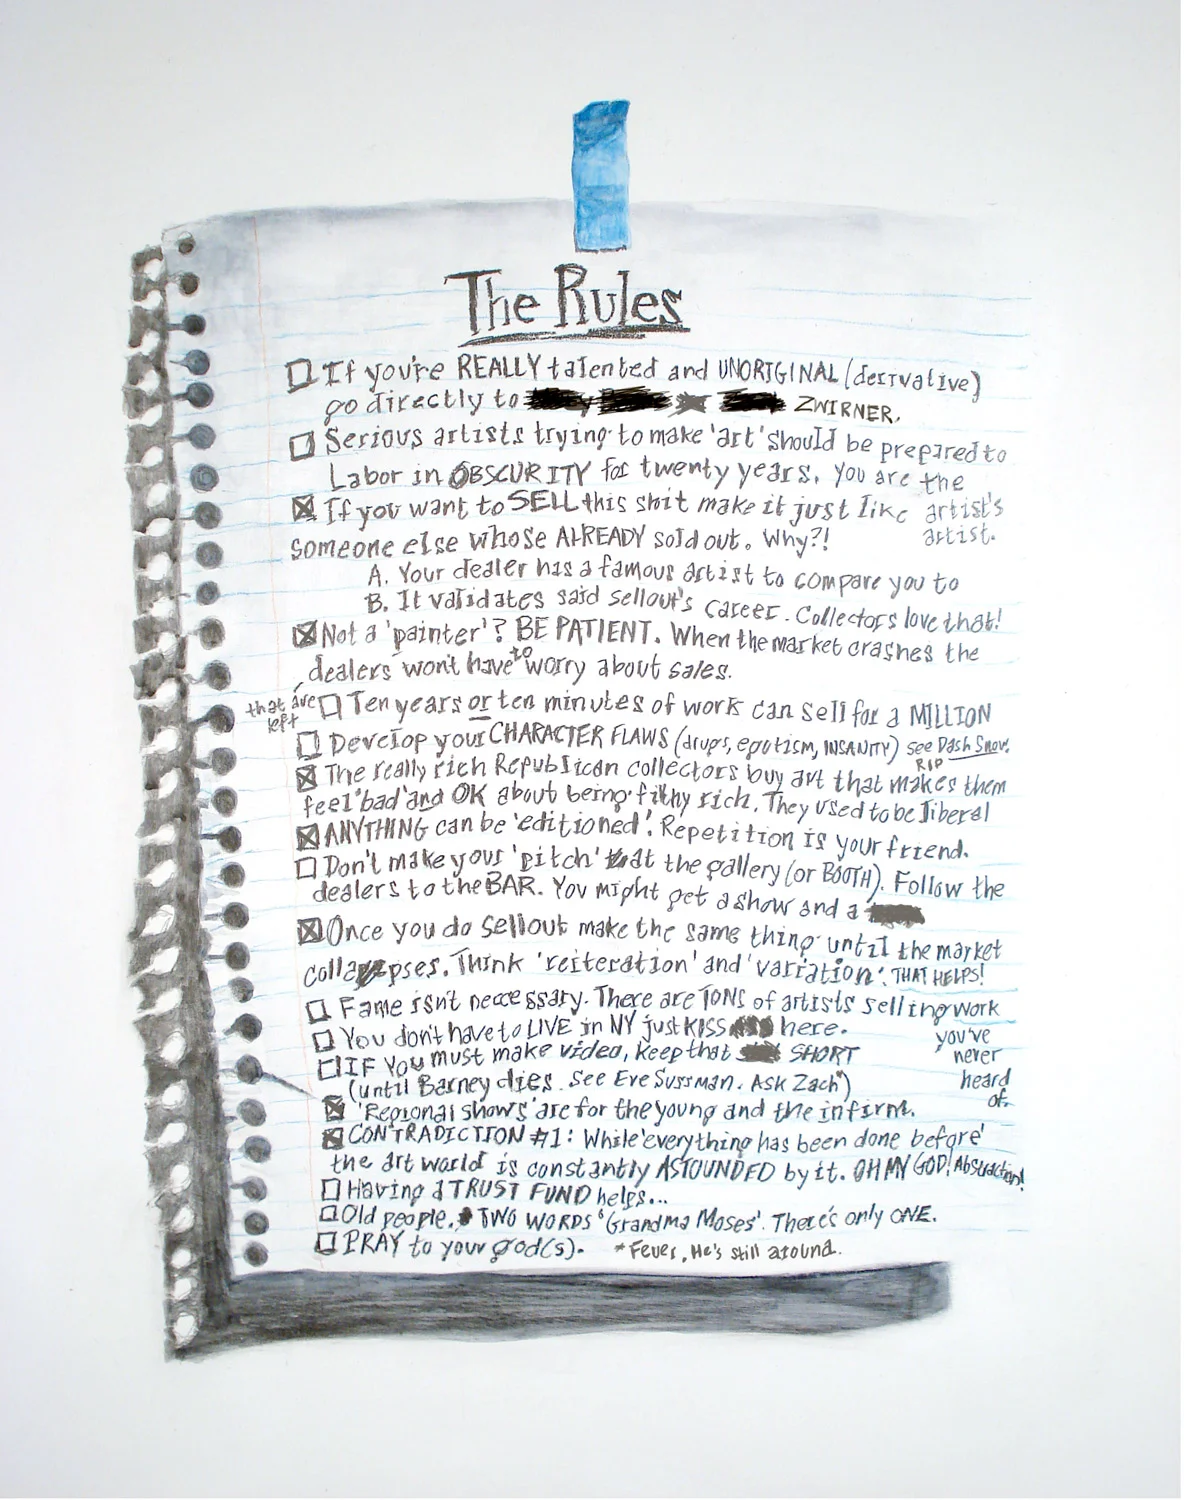 The Rules
☐ If you're REALLY talented and UNORIGINAL (derivative)
go directly to ZWIRNER.
☐ Serious artists trying to make 'art' should be prepared to
Labor in OBSCURITY for twenty years. You are the
artist's
artist.
☒ If you want to SELL this shit make it just like
someone else whose ALREADY sold out. Why?!
A. Your dealer has a famous artist to compare you to
B. It validates said sellout's career. Collectors love that!
☒ Not a 'painter'? BE PATIENT. When the market crashes the
dealers won't have to worry about sales.
that are
left
☐ Ten years or ten minutes of work can sell for a MILLION
☐ Develop your CHARACTER FLAWS (drugs, egotism, INSANITY) see Dash Snow.
RIP
☒ The really rich Republican collectors buy art that makes them
feel 'bad' and OK about being filthy rich. They used to be liberal
☒ ANYTHING can be 'editioned'. Repetition is your friend.
☐ Don't make your 'pitch' at the gallery (or BOOTH). Follow the
dealers to the BAR. You might get a show and a
☒ Once you do sellout make the same thing until the market
collapses. Think 'reiteration' and 'variation'. THAT HELPS!
☐ Fame isn't neccessary. There are TONS of artists selling work
you've
never
heard
of.
☐ You don't have to LIVE in NY just KISS here.
☐ IF YOU must make video, keep that SHORT
(until Barney dies. See Eve Sussman. Ask Zach*)
☒ 'Regional shows' are for the young and the infirm.
☒ CONTRADICTION #1: While 'everything has been done before'
the art world is constantly ASTOUNDED by it. OH MY GOD! Abstraction!
☐ Having a TRUST FUND helps...
☐ Old people. TWO WORDS 'Grandma Moses'. There's only ONE.
☐ PRAY to your god(s). *Feuer, He's still around.